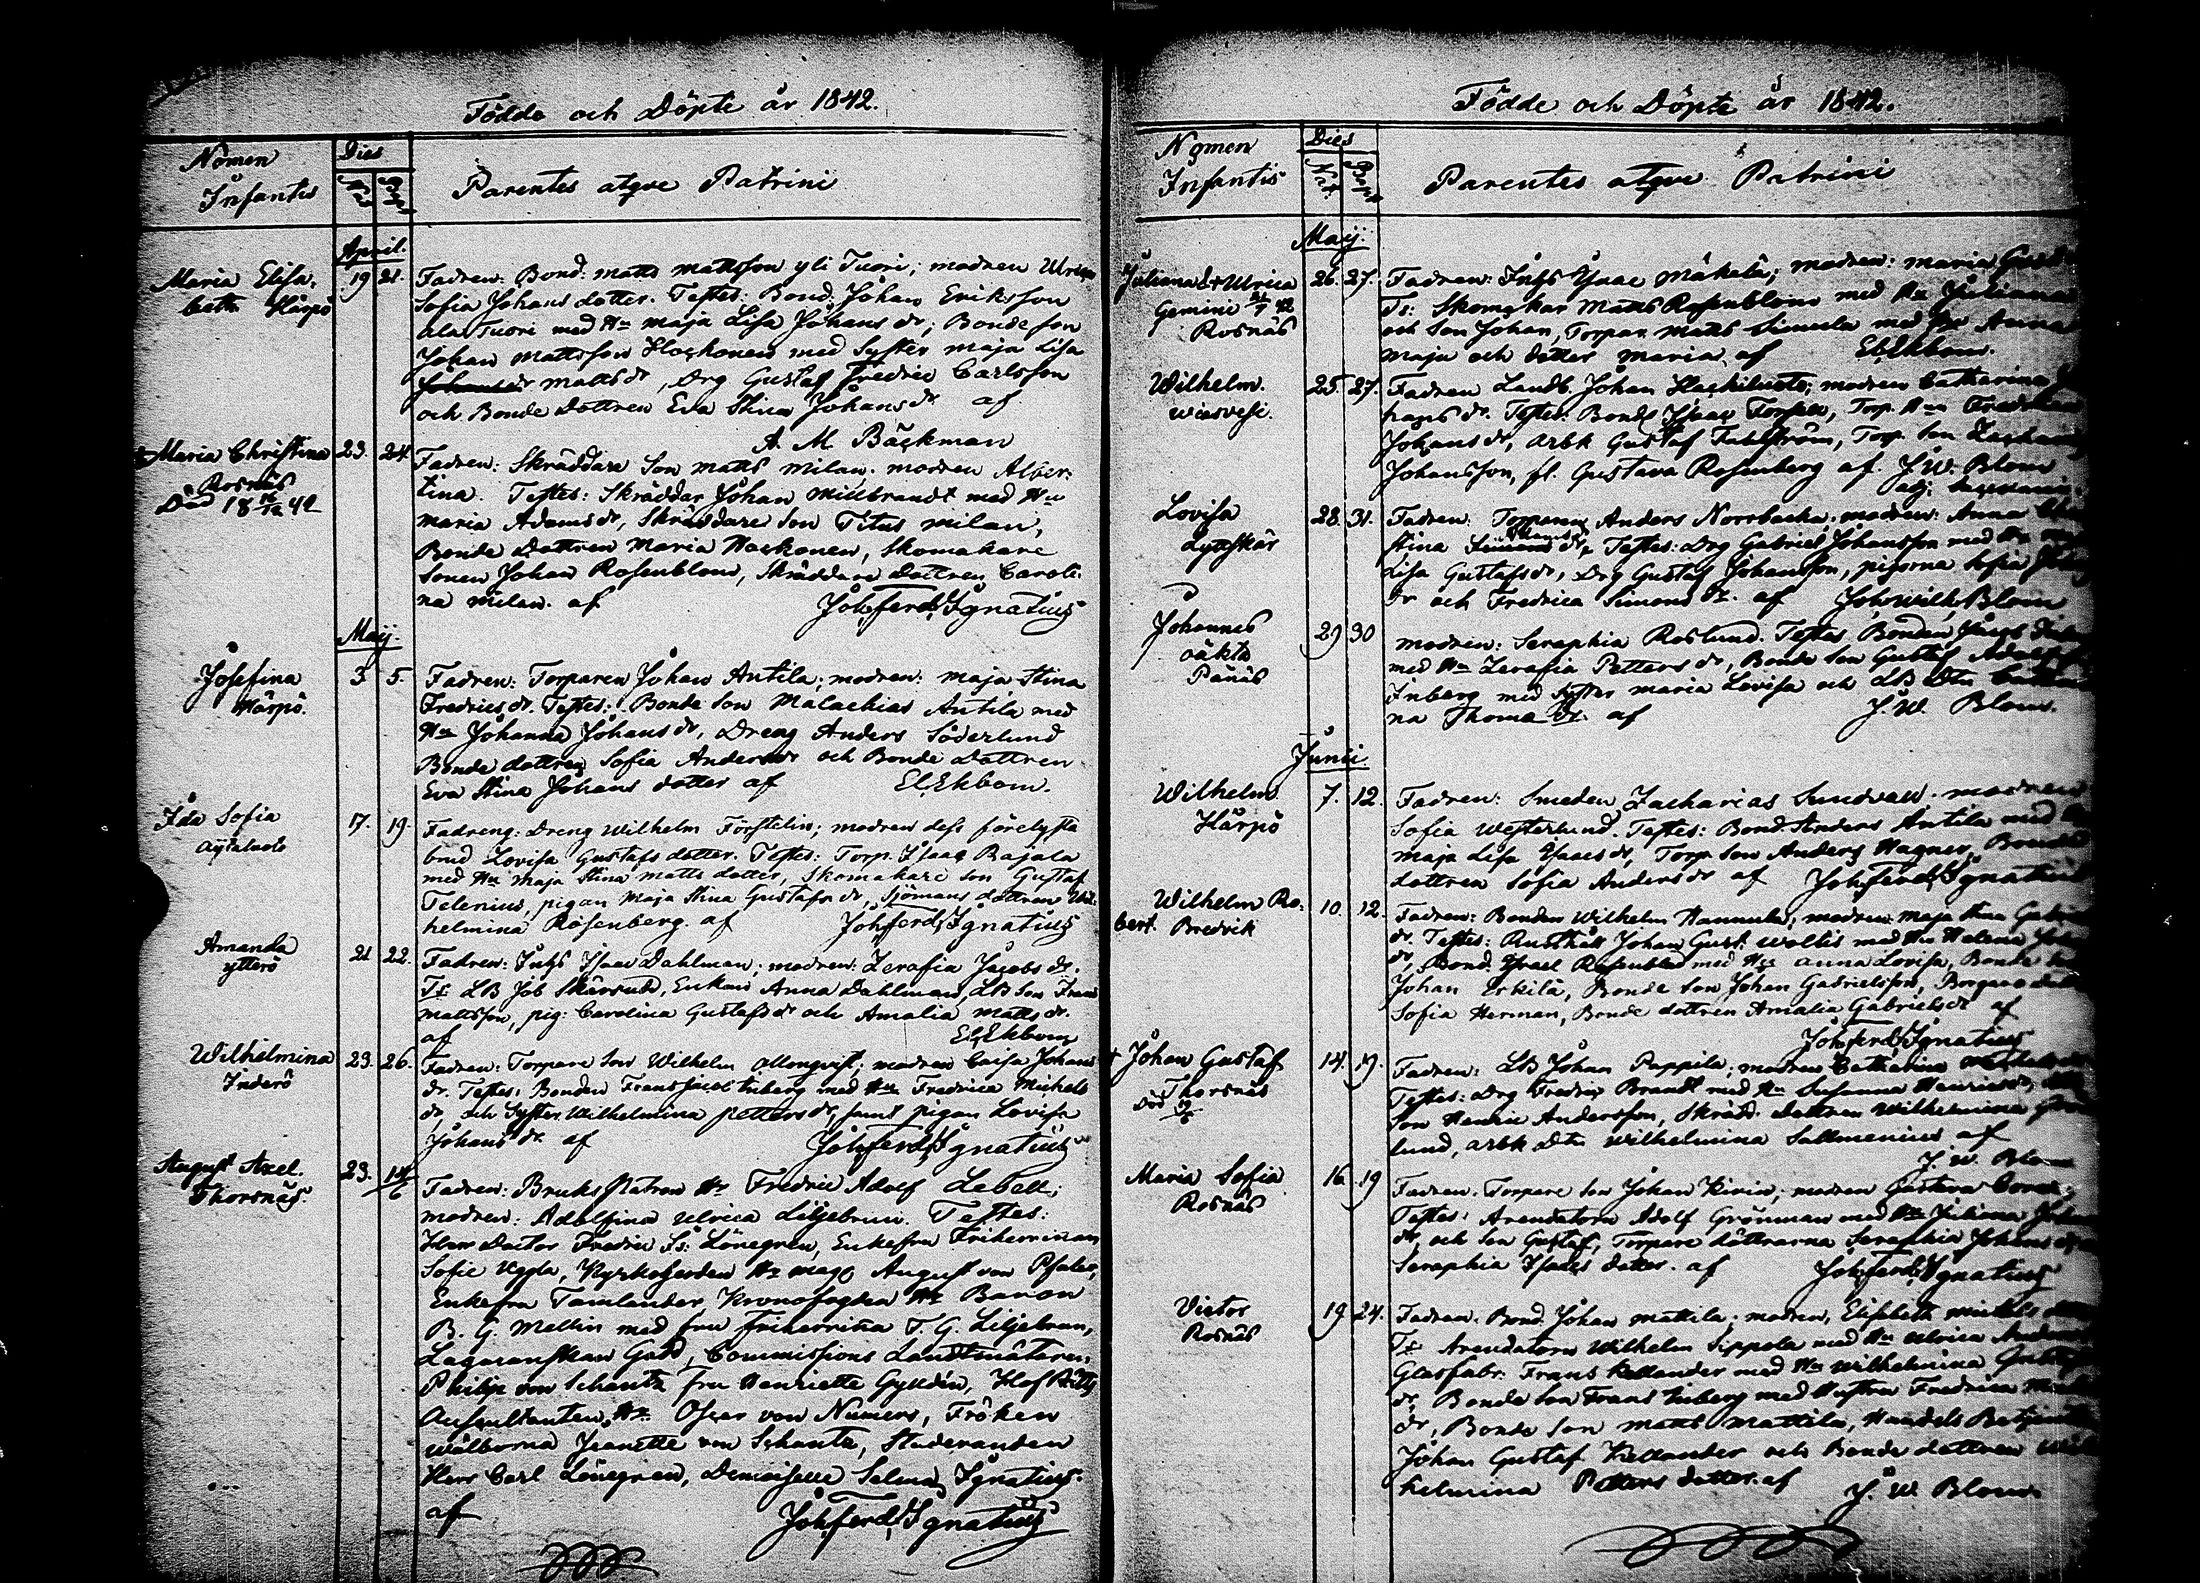 Födde och Döpte år 1842.
Nomen Infantis
Dies
Parentes atqve Patrini
April.
Maria Elisa-
beth Härpö
19 21.
Fadren: Bond: Matts Mattsson yli Tuori; modren Ulrica
Sofia Johans dotter. Testes: Bond. Johan Eriksson
ala Tuori med Hu Maja Lisa Johans dr; Bondeson
Johan Mattsson Hackonen med Syster Maja Lisa
Matts dr, Drg Gustaf Fredric Carlsson
och Bonde dottren Eva Stina Johans dr af
A. M. Bäckman
Maria Christina
Rosnäs
Död 18 42
23. 24.
Fadren: Skräddare Son Matts Milan. modren Alber-
tina. Testes: Skräddar Johan Millbrandt med Hu
Maria Adams dr, Skräddare Son Titus Milan,
Bonde Dottren Maria Hackonen, Skomakare
Sonen Johan Rosenblom, Skräddare Dottren Caroli-
na Milan. af Joh. Ferd. Ignatius
Maij.
Josefina
Härpö.
3. 5.
Fadren: Torparen Johan Antila; modren: Maja Stina
Fredrics dr. Testes: Bonde Son Malachias Antila med
Hu Johanna Johans dr, Dreng Anders Söderlund
Bonde dottren Sofia Anders dr och Bonde Dottren
Eva Stina Johans dotter af El. Ekbom.
Ida Sofia
17. 19.
Fadren: Dreng Wilhelm Förstelin; modren dess förelysta
brud Lovisa Gustafs dotter. Testes: Torp. Isaac Rajala
med Hu Maja Stina Matts dotter, Skomakare Son Gustaf
Telenius, pigan Maja Stina Gustafs dr, Sjömans dottren Wil-
helmina Rosenberg. af Joh. Ferd. Ignatius
Amanda
ytterö
21 22.
Fadren: Inhs Isaac Dahlman; modren: Zerafia Jacobs dr.
Ts: LB Job Skärsund, Enkan Anna Dahlman, LB Son Frans
Mattsson, pig: Carolina Gustafs dr och Amalia Matts dr.
af El. Ekbom
Wilhelmina
Inderö
23. 26.
Fadren: Torpare Son Wilhelm Allonqvist; modren Caisa Johans
dr. Testes: Bonden Frans Jacob Inberg med Hu Fredrica Michels
dr, och Syster Wilhelmina Petters dr, samt pigan Lovisa
Johans dr. af Joh. Ferd. Ignatius
August Axel.
Thorsnäs
23. 14/6
Fadren: Bruks Patron Hr Fredric Adolf Lebell;
modren: Adolfina Ulrica Liljebrun. Testes:
Herr Doctor Fredric Lönegren, Enkefru Friherrinnan
Sofie Uggla, Kyrkoherden Hr Mag. August von Pfaler,
Enkefru Tamlander, Kronofogden Hr Baron
B. G. Mellin med fru Friherrinna T. G. Liljebrun,
Commissions Landtmätaren
Philip von Schantz fru Henriette Gyldén, Hof Rätts
Auscultanten Hr Oscar von Numers, Fröken
Wälborna Jeanette von Schantz, Studeranden
Herr Carl Lönegren, Demoiselle Selma Ignatius.
af Joh. Ferd. Ignatius
Födde och Döpte år 1842.
Nomen Infantis
Dies
Nat. Bapt.
Parentes atqve Patrini
Maij.
Juliana & Ulrica
Gemini
Rosnäs
26. 27.
Fadren: Inhs Isaac Mäkelä; modren: Maria
Ts: Skomakar Matts Rosenblom med Hu Juliana
och Son Johan, Torpar. Matts Simula med Hu Anna
Maja och dotter Maria af El. Ekbom.
Wilhelm.
wiasvesi.
25. 27.
Fadren Landb. Johan modren Catharina
Testes: Bond. Isaac Torp. Hu Fredrica
Johans dr, arbk Gustaf Fahlström, Torp. Son
Johansson, fl. Gustava Rosenberg af. J. W. Blom
Lovisa
Lyttskär
28. 31.
Fadren: Torparen Anders Norrbacka. modren: Anna
stina Testes: Drg Gabriel Johansson med Hu
Lisa Gustafs dr, Drg Gustaf Johansson, pigorna Sofia
dr och Fredrica Simons dr. af Joh. Wilh. Blom
Johannes
oäkta
Pånäs
29 30
modren: Seraphia Roslund. Testes Bonden
med Hu Zerafia Petters dr, Bonde Son Gustaf
Inberg med Syster Maria Lovisa och LB Dtr
na Thomas dr. af J. W. Blom.
Junii
Wilhelm
Härpö
7. 12.
Fadren: Smeden Zacharias Sundvall. modren
Sofia Westerlund. Testes: Bond. Anders Antila med
Maja Lisa Isacs dr, Torp. Son Anders Hagner, Bonde
dottren Sofia Anders dr af Joh. Ferd. Ignatius
Wilhelm Ro-
bert. Bredvik
10. 12.
Fadren: Bonden Wilhelm Hannula; modren Maja Stina
dr. Testes: Rusthåll Johan Gust. Wollis med Hu Helena
dr, Bond. Israel Rosenblad med Hu Anna Lovisa, Bonde
Johan Erkilä, Bonde Son Johan Gabrielsson, Borgare
Sofia Herman, Bonde dottren Amalia Gabriels dr af
Joh. Ferd. Ignatius
Johan Gustaf
Thorsnäs
Död
14. 19.
Fadren: LB Johan Pappila; modren Catharina
Testes: Drg Fredric Brandt med Hu Susanna Henrics dr,
Son Henric Andersson, Skrädd. dottren Wilhelmina
lund, arbk Dtr Wilhelmina Sallmenius af
J. W. Blom
Maria Sofia
Rosnäs
16. 19
Fadren: Torpare Son Johan Kivin; modren Gustava
Testes: Arendatorn Adolf Grönman med Hu Juliana
dr, och Son Gustaf, Torpare döttrarna Seraphia Johans dr
Seraphia Isacs dotter. af Joh. Ferd. Ignatius
Victor
Rosnäs
19. 24.
Fadren: Bond. Johan Mattila; modren, Elisabeth Michels
Ts: Arendatorn Wilhelm Sippola med Hu Ulrica
Glasfabr. Frans Kellander med Hu Wilhelmina
dr, Bonde Son Frans Inberg med Hustru Fredrica
dr, Bonde Son Matts Mattila, Handels Betjent
Johan Gustaf Kellander och Bonde dottren Wil-
helmina Petters dotter. af J. W. Blom